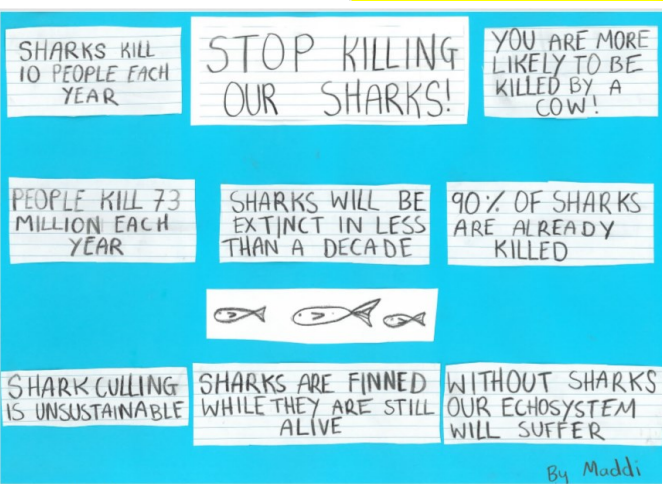 SHARKS KILL
10 PEOPLE EACH
YEAR
STOP KILLING
OUR SHARKS!
YOU ARE MORE
LIKELY TO BE
KILLED BY A
COW!
PEOPLE KILL 73
MILLION EACH
YEAR
SHARKS WILL BE
EXTINCT IN LESS
THAN A DECADE
90% OF SHARKS
ARE ALREADY
KILLED
SHARK CULLING
IS UNSUSTAINABLE
SHARKS ARE FINNED
WHILE THEY ARE STILL
ALIVE
WITHOUT SHARKS
OUR ECHOSYSTEM
WILL SUFFER
By Maddi